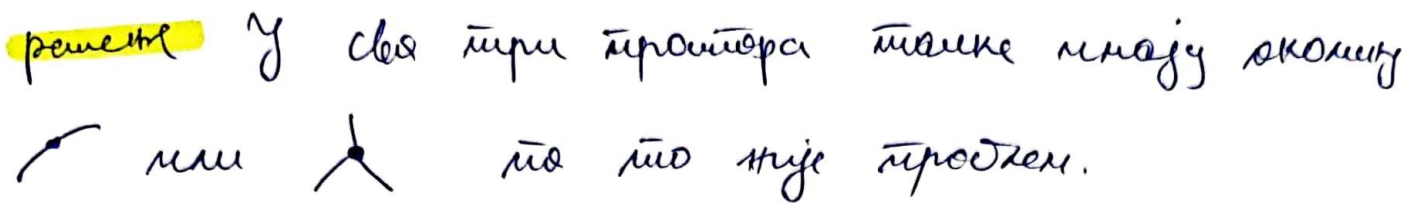 решење У сва три простора тачке имају околину
или па то није проблем.